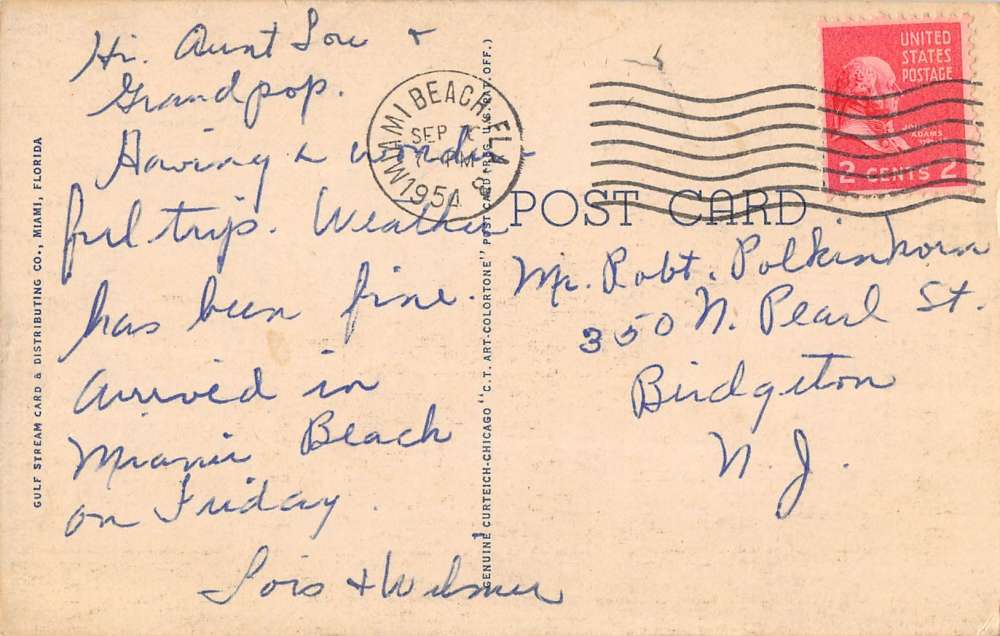 Hi. Aunt Lou +
Grandpop.
Having a wonder-
ful trip. Weather
has been fine.
Arrived in
Miami Beach
on Friday.
Lois + Wilmer
GULF STREAM CARD & DISTRIBUTING CO., MIAMI, FLORIDA
GENUINE CURTEICH-CHICAGO "C.T. ART-COLORTONE" POST CARD (REG. U.S. PAT. OFF.)
MIAMI BEACH, FLA.
SEP
PM
1951
UNITED
STATES
POSTAGE
JOHN
ADAMS
2 CENTS 2
POST CARD
Mr. Robt. Polkinhorn
350 N. Pearl St.
Bridgeton
N. J.